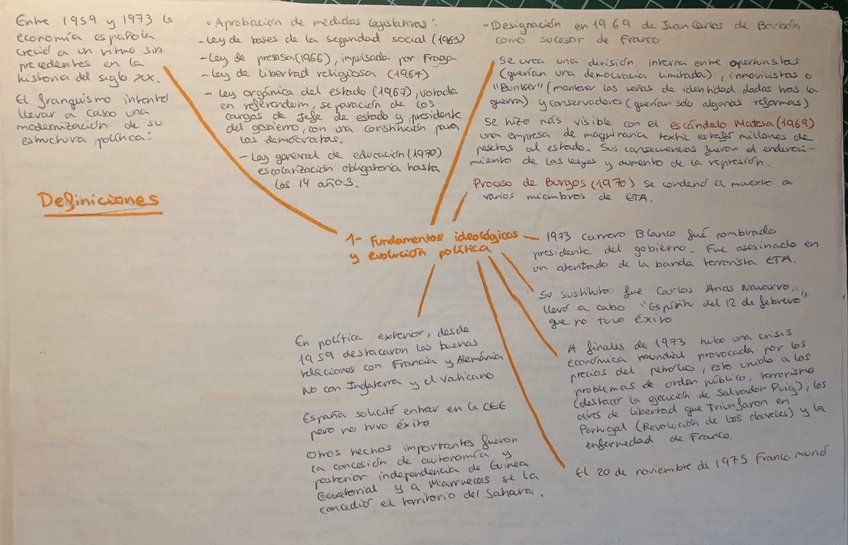 Entre 1959 y 1973 la
economía española
creció a un ritmo sin
precedentes en la
historia del siglo XX.
El franquismo intentó
llevar a cabo una
modernización de su
estructura política:
Definiciones
- Aprobación de medidas legislativas:
- Ley de bases de la seguridad social (1963)
- Ley de prensa (1966), impulsada por Fraga
- Ley de libertad religiosa (1967)
- Ley orgánica del estado (1967), votada
en referendum, separación de los
cargos de jefe de estado y presidente
del gobierno, con una constitución para
los demócratas.
- Ley general de educación (1970)
escolarización obligatoria hasta
los 14 años.
- Designación en 1969 de Juan Carlos de Borbón
como sucesor de Franco
Se crea una división interna entre aperturistas
(querían una democracia limitada), inmovilistas o
"Bunker" (mantener las señas de identidad dadas tras la
guerra) y conservadores (querían solo algunas reformas)
Se hizo más visible con el escándalo Matesa (1969)
una empresa de maquinaria textil estafó millones de
pesetas al estado. Sus consecuencias fueron el endureci-
miento de las leyes y aumento de la represión.
Proceso de Burgos (1970) Se condenó a muerte a
varios miembros de ETA.
1- Fundamentos ideológicos
y evolución política
1973 Carrero Blanco fué nombrado
presidente del gobierno. Fue asesinado en
un atentado de la banda terrorista ETA.
Su sustituto fue Carlos Arias Navarro,
llevó a cabo "Espíritu del 12 de febrero"
que no tuvo éxito
A finales de 1973 hubo una crisis
económica mundial provocada por los
precios del petroleo, esto unido a los
problemas de orden público, terrorismo
(destacó la ejecución de Salvador Puig), los
aires de libertad que triunfaron en
Portugal (Revolución de los claveles) y la
enfermedad de Franco.
El 20 de noviembre de 1975 Franco murió
En política exterior, desde
1959 destacaron las buenas
relaciones con Francia y Alemania
No con Inglaterra y el Vaticano
España solicitó entrar en la CEE
pero no tuvo éxito
Otros hechos importantes fueron
la concesión de autonomía y
posterior independencia de Guinea
Ecuatorial y a Marruecos se la
concedió el territorio del Sahara.